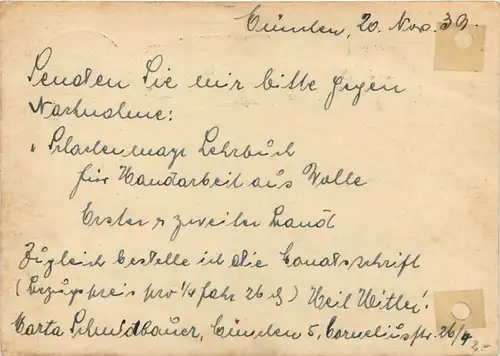 München, 20. Nov. 39.
Senden Sie mir bitte gegen
Nachnahme:
"Schachenmayr Lehrbuch
für Handarbeit aus Wolle
Erster & zweiter Band
Zugleich bestelle ich die Monatsschrift
(Bezugspreis pro 1/4 Jahr 26 ₰) Heil Hitler!
Marta Schmidbauer, München 5, Corneliusstr. 26/4